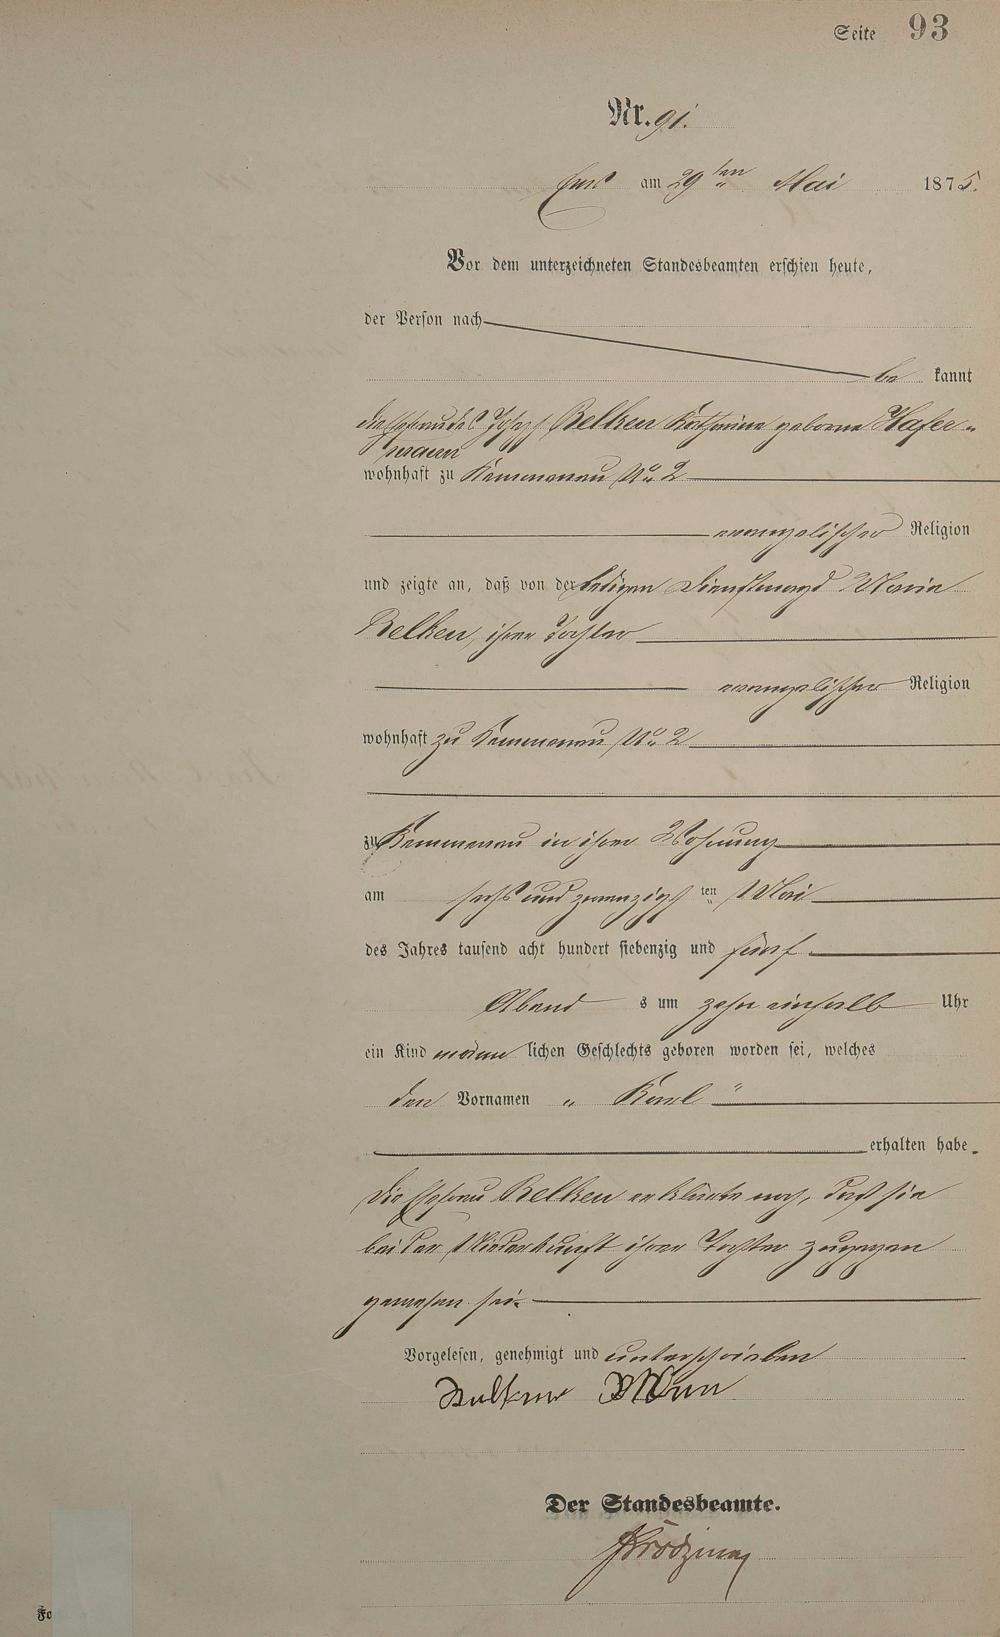 Seite 93
Nr. 91.
Ems am 29ten Mai 1875.
Vor dem unterzeichneten Standesbeamten erschien heute,
der Person nach
be kannt
die Ehefrau des Joseph Belken Katharine geborne Hafer-
mann
wohnhaft zu Kemmenau No 2
evangelischer Religion
und zeigte an, daß von der ledigen Dienstmagd Maria
Belken, ihrer Tochter
evangelischer Religion
wohnhaft zu Kemmenau No 2
zu Kemmenau in ihrer Wohnung
am sechs und zwanzigsten Mai
des Jahres tausend acht hundert siebenzig und fünf
Abend s um zehn einhalb Uhr
ein Kind männ lichen Geschlechts geboren worden sei, welches
den Vornamen " Karl "
erhalten habe.
Die Ehefrau Belken erklärte noch, daß sie
bei der Niederkunft ihrer Tochter zugegen
gewesen sei.
Vorgelesen, genehmigt und unterschrieben
Der Standesbeamte.
Fo